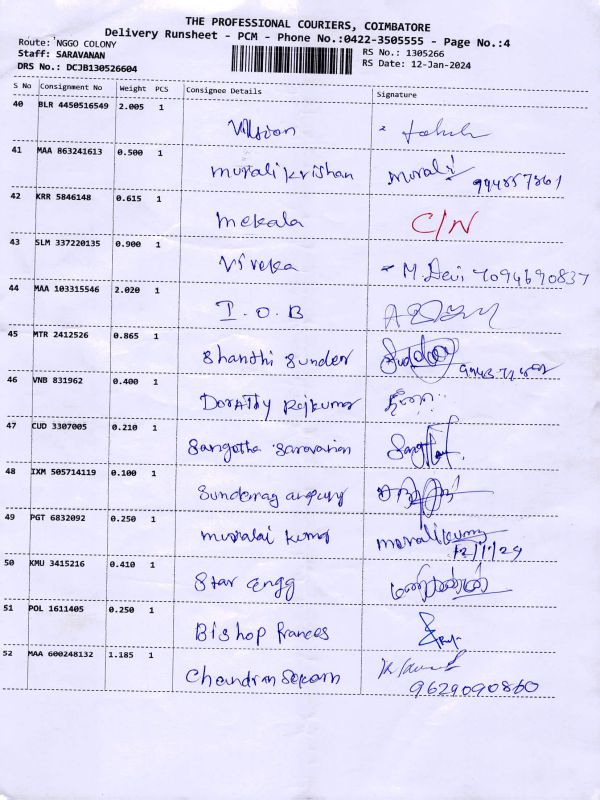 THE PROFESSIONAL COURIERS, COIMBATORE
Delivery Runsheet - PCM - Phone No.:0422-3505555 - Page No.:4
Route: NGGO COLONY
RS No.: 1305266
Staff: SARAVANAN
RS Date: 12-Jan-2024
DRS No.: DCJB130526604
S No Consignment No Weight PCS Consignee Details Signature
40 BLR 4450516549 2.005 1
41 MAA 863241613 0.500 1 murali krishan murali
42 KRR 5846148 0.615 1 mekala C/N
43 SLM 337220135 0.900 1 Viveka M. Devi 7094690837
44 MAA 103315546 2.020 1 I.O.B
45 MTR 2412526 0.865 1 Shanthi Sunder
46 VNB 831962 0.400 1 Doratty Rajkumar
47 CUD 3307005 0.210 1 Sangotha Saravanan
48 IXM 505714119 0.100 1
49 PGT 6832092 0.250 1 muralai kumar muralikumar
12/1/24
50 KMU 3415216 0.410 1 Star Engg
51 POL 1611405 0.250 1 Bishop frances
52 MAA 600248132 1.185 1 Chandran Sekarn
9629090860